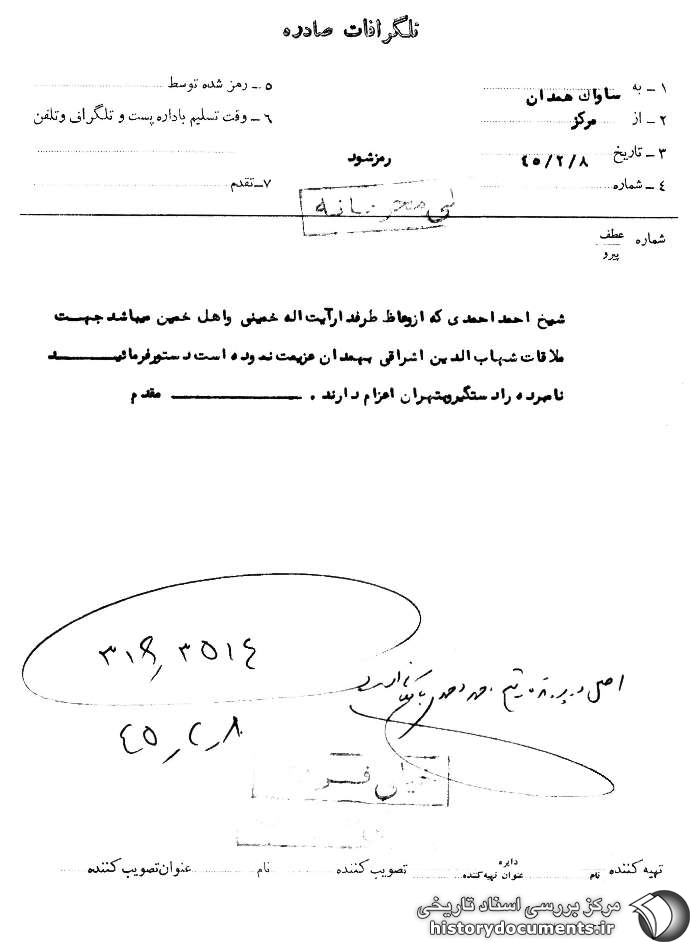 تلگرافات صادره
۱ ــ به ساواک همدان
۲ ــ از مرکز
۳ ــ تاریخ ۴۵/۲/۸
۴ ــ شماره
رمزشود
۵ ــ رمز شده توسط
۶ ــ وقت تسلیم باداره پست و تلگراف و تلفن
۷ــ تقدم
خیلی محرمانه
شماره عطف
پیرو
شیخ احمد احمدی که ازوعاظ طرفدارآیت اله خمینی واهل خمین میباشد جهت
ملاقات شهاب الدین اشراقی بهمدان عزیمت نموده است دستورفرمائید
نامبرده را دستگیروبتهران اعزام دارند . ــــــ مقدم
۳۵۱۴
۳۱۶
اصل در پرونده
۴۵٫۲٫۸
تهیه کننده نام دایره عنوان تهیه کننده تصویب کننده نام عنوان تصویب کننده
مرکز بررسی اسناد تاریخی
historydocuments.ir